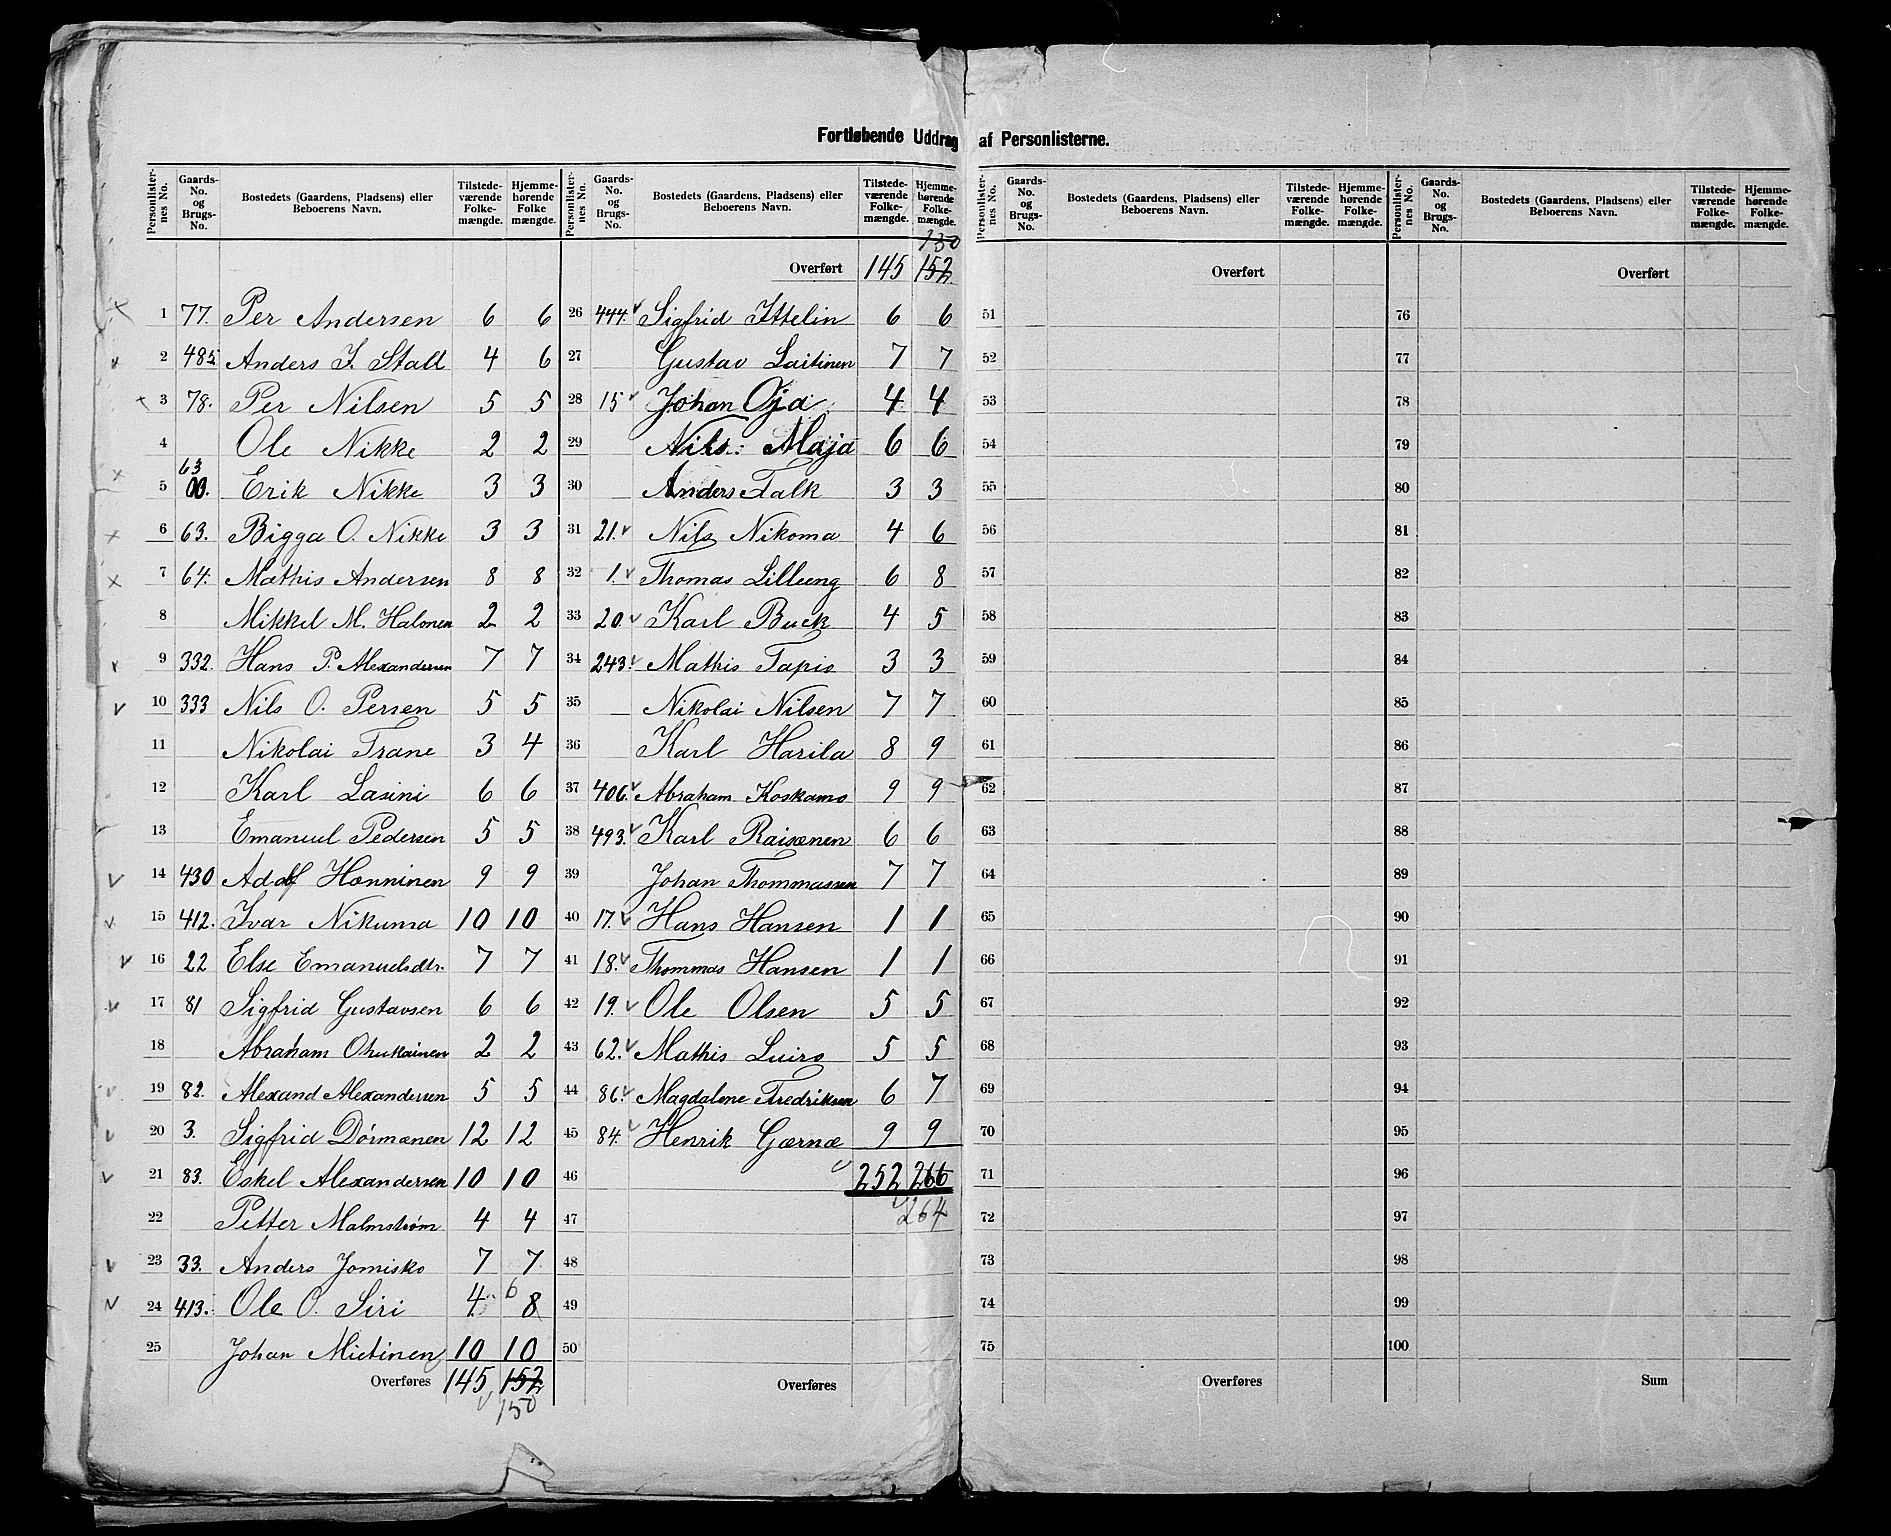 Fortløbende Uddrag af Personlisterne.
Personlister-nes No. Gaards-No. og Brugs-No. Bostedets (Gaardens, Pladsens) eller Beboerens Navn. Tilstede-værende Folke-mængde. Hjemme-hørende Folke mængde.
1 77. Per Andersen 6 6
2 485 Anders J. Stall 4 6
3 78. Per Nilsen 5 5
4 Ole Nikke 2 2
5 63 Erik Nikke 3 3
6 63. Bigga O. Nikke 3 3
7 64. Mathis Andersen 8 8
8 Mikkel M. Halonen 2 2
9 332. Hans P. Alexandersen 7 7
10 333 Nils O. Persen 5 5
11 Nikolai Trane 3 4
12 Karl Lasini 6 6
13 Emanuel Pedersen 5 5
14 430 Adolf Hænninen 9 9
15 412. Ivar Nikuma 10 10
16 22 Else Emanuelsdtr. 7 7
17 81 Sigfrid Gustavsen 6 6
18 Abraham Ohukainen 2 2
19 82. Alexand Alexandersen 5 5
20 3. Sigfrid Dørmænen 12 12
21 83. Eskel Alexandersen 10 10
22 Petter Malmstrøm 4 4
23 33. Anders Jomisko 7 7
24 413. Ole O. Siri 4 6 8
25 Johan Mietinen 10 10
Overføres 145 152
150
Personlister-nes No. Gaards-No. og Brugs-No. Bostedets (Gaardens, Pladsens) eller Beboerens Navn. Tilstede-værende Folke-mængde. Hjemme-hørende Folke-mængde.
150
Overført 145 152
26 444. Sigfrid Ittelin 6 6
27 Gustav Laitinen 7 7
28 15 Johan Oja 4 4
29 Nils Maja 6 6
30 Anders Falk 3 3
31 21. Nils Nikoma 4 6
32 1. Thomas Lilleeng 6 8
33 20. Karl Buck 4 5
34 243. Mathis Tapio 3 3
35 Nikolai Nilsen 7 7
36 Karl Harila 8 9
37 406. Abraham Koskamo 9 9
38 493. Karl Raisænen 6 6
39 Johan Thommassen 7 7
40 17. Hans Hansen 1 1
41 18. Thommas Hansen 1 1
42 19. Ole Olsen 5 5
43 62. Mathis Luiro 5 5
44 86. Magdalene Fredriksen 6 7
45 84. Henrik Gærnæ 9 9
46 252 266
47 264
48
49
50
Overføres
Personlister-nes No. Gaards-No. og Brugs-No. Bostedets (Gaardens, Pladsens) eller Beboerens Navn. Tilstede-værende Folke-mængde. Hjemme-hørende Folke-mængde.
Overført
51
52
53
54
55
56
57
58
59
60
61
62
63
64
65
66
67
68
69
70
71
72
73
74
75
Overføres
Personlister-nes No. Gaards-No. og Brugs-No. Bostedets (Gaardens, Pladsens) eller Beboerens Navn. Tilstede-værende Folke-mængde. Hjemme-hørende Folke-mængde.
Overført
76
77
78
79
80
81
82
83
84
85
86
87
88
89
90
91
92
93
94
95
96
97
98
99
100
Sum